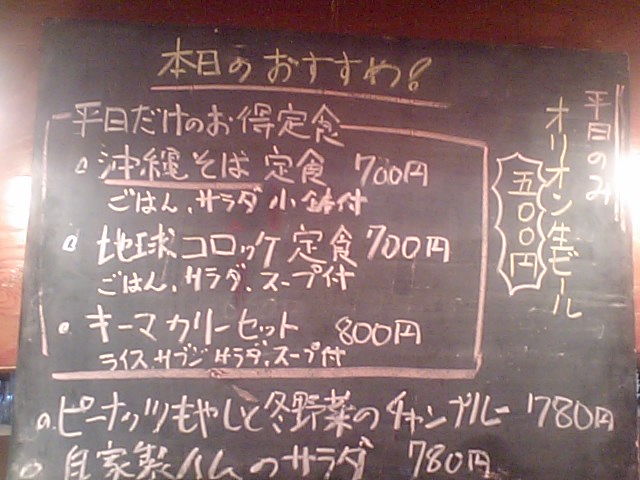 本日のおすすめ!
平日だけのお得定食
沖縄そば定食 700円
ごはん、サラダ 小鉢付
地球コロッケ定食 700円
ごはん、サラダ、スープ付
キーマカリーセット 800円
ライス、サブジ、サラダ、スープ付
ピーナッツもやしと冬野菜のチャンプルー 780円
自家製ハムのサラダ 780円
平日のみ
オリオン生ビール
五〇〇円